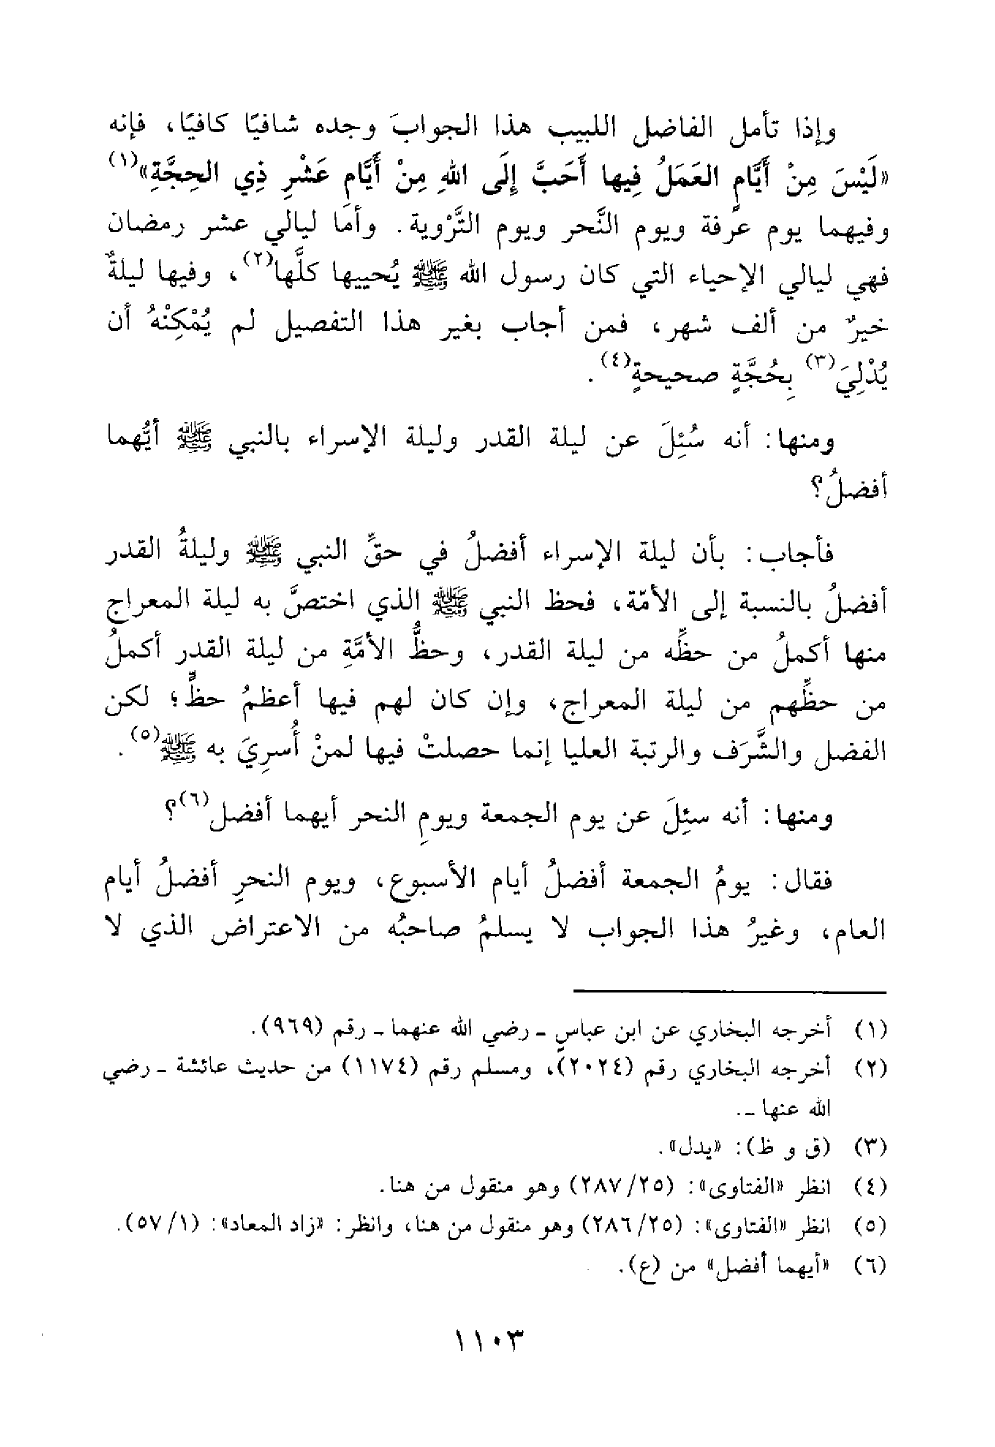 وإذا تأمل الفاضل اللبيب هذا الجوابَ وجده شافيًا كافيًا، فإنه
«لَيْسَ مِنْ أَيَّامٍ العَمَلُ فِيها أَحَبَّ إِلَى اللهِ مِنْ أَيَّامِ عَشْرِ ذِي الحِجَّةِ»(١)
وفيهما يوم عرفة ويوم النَّحر ويوم التَّرْوية. وأما ليالي عشر رمضان
فهي ليالي الإحياء التي كان رسول الله ﷺ يُحييها كلَّها(٢)، وفيها ليلةٌ
خيرٌ من ألف شهر، فمن أجاب بغير هذا التفصيل لم يُمْكِنْهُ أن
يُدْلِيَ(٣) بِحُجَّةٍ صحيحةٍ(٤).
ومنها: أنه سُئِلَ عن ليلة القدر وليلة الإسراء بالنبي ﷺ أيُّهما
أفضلُ؟
فأجاب: بأن ليلة الإسراء أفضلُ في حقِّ النبي ﷺ وليلةُ القدر
أفضلُ بالنسبة إلى الأمّة، فحظ النبي ﷺ الذي اختصَّ به ليلة المعراج
منها أكملُ من حظِّه من ليلة القدر، وحظُّ الأمَّةِ من ليلة القدر أكملُ
من حظِّهم من ليلة المعراج، وإن كان لهم فيها أعظمُ حظٍّ؛ لكن
الفضل والشَّرَف والرتبة العليا إنما حصلتْ فيها لمنْ أُسرِيَ به ﷺ(٥).
ومنها: أنه سئِلَ عن يوم الجمعة ويومِ النحر أيهما أفضل(٦)؟
فقال: يومُ الجمعة أفضلُ أيام الأسبوع، ويوم النحرِ أفضلُ أيام
العام، وغيرُ هذا الجواب لا يسلمُ صاحبُه من الاعتراض الذي لا
(١) أخرجه البخاري عن ابن عباسٍ ـ رضي الله عنهما ـ رقم (٩٦٩).
(٢) أخرجه البخاري رقم (٢٠٢٤)، ومسلم رقم (١١٧٤) من حديث عائشة ـ رضي
الله عنها ـ.
(٣) (ق و ظ): «يدل».
(٤) انظر «الفتاوى»: (٢٨٧/٢٥) وهو منقول من هنا.
(٥) انظر «الفتاوى»: (٢٨٦/٢٥) وهو منقول من هنا، وانظر: «زاد المعاد»: (٥٧/١).
(٦) «أيهما أفضل» من (ع).
١١٠٣